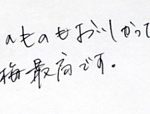 のものもおいしかって
梅最高です。